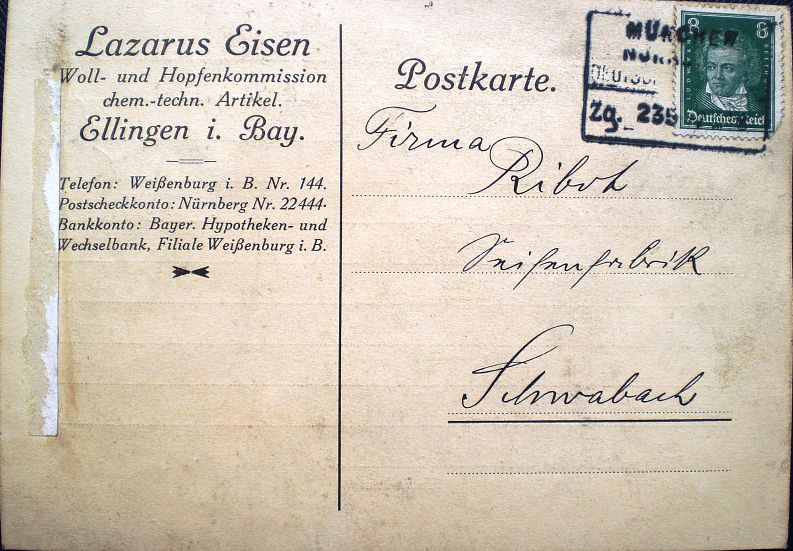 Lazarus Eisen
Woll- und Hopfenkommission
chem.-techn. Artikel.
Ellingen i. Bay.
Telefon: Weißenburg i. B. Nr. 144.
Postscheckkonto: Nürnberg Nr. 22444.
Bankkonto: Bayer. Hypotheken- und
Wechselbank, Filiale Weißenburg i. B.
Postkarte.
MÜNCHEN
Zg. 235
8 8
Deutsches Reich
Firma
Ribot
Seifenfabrik
Schwabach